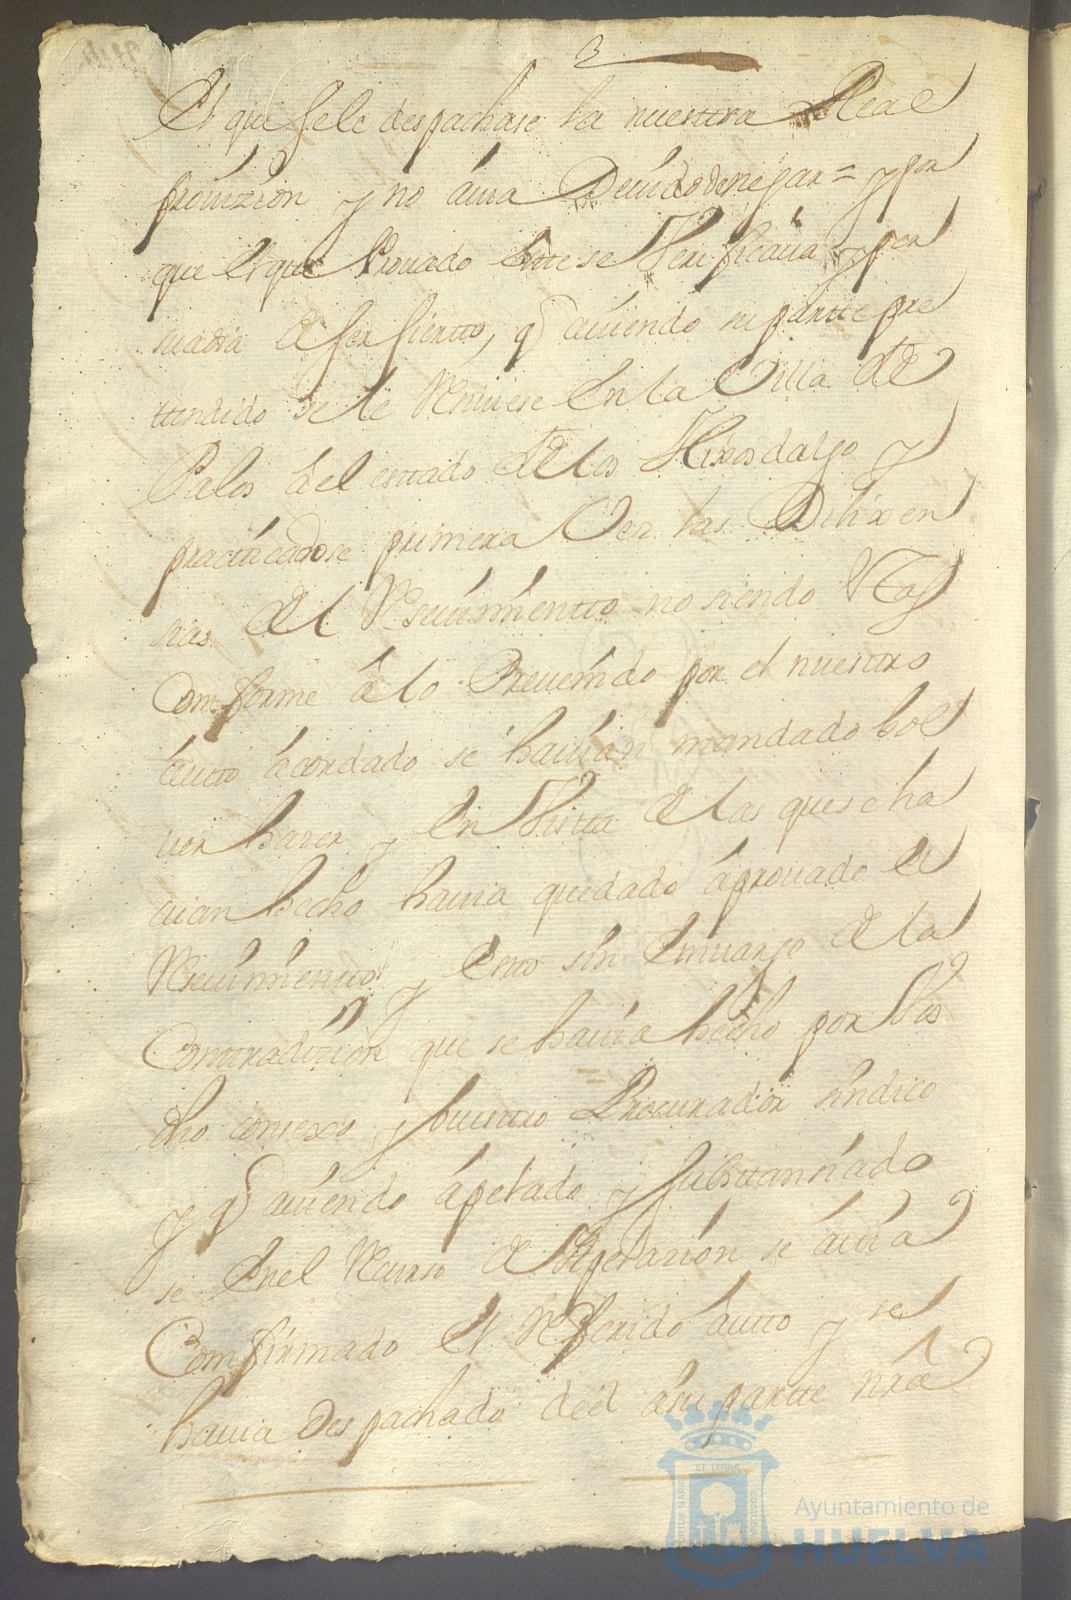 El que sele despachase la nuestra Real
provizion y no avia Devido denegar = y por
que el que Provado este se Verificava y per
suadia de ser sierto, q aviendo su parte pre
tendido se le Reciviese en la Villa de
Palos del estado de los Hixosdalgo y
practicadose primera Vez las Dilixen
sias del Resevimiento no siendo estas
Comforme a lo Prevenido por el nuestro
auto acordado se havian mandado bol
ver hazer y en Vista de las que se ha
vian hecho havia quedado aprovado el
Resevimiento y esto sin Envargo de la
Contradizion que se havia hecho por Vos
dho consexo y Vuestro Procurador sindico
y q aviendo apelado y substtanciado
se en el Recurso de Apelazion se avia
Comfirmado el Referido auto y se
havia Despachado de el a su parte nra
Ayuntamiento de
HUELVA